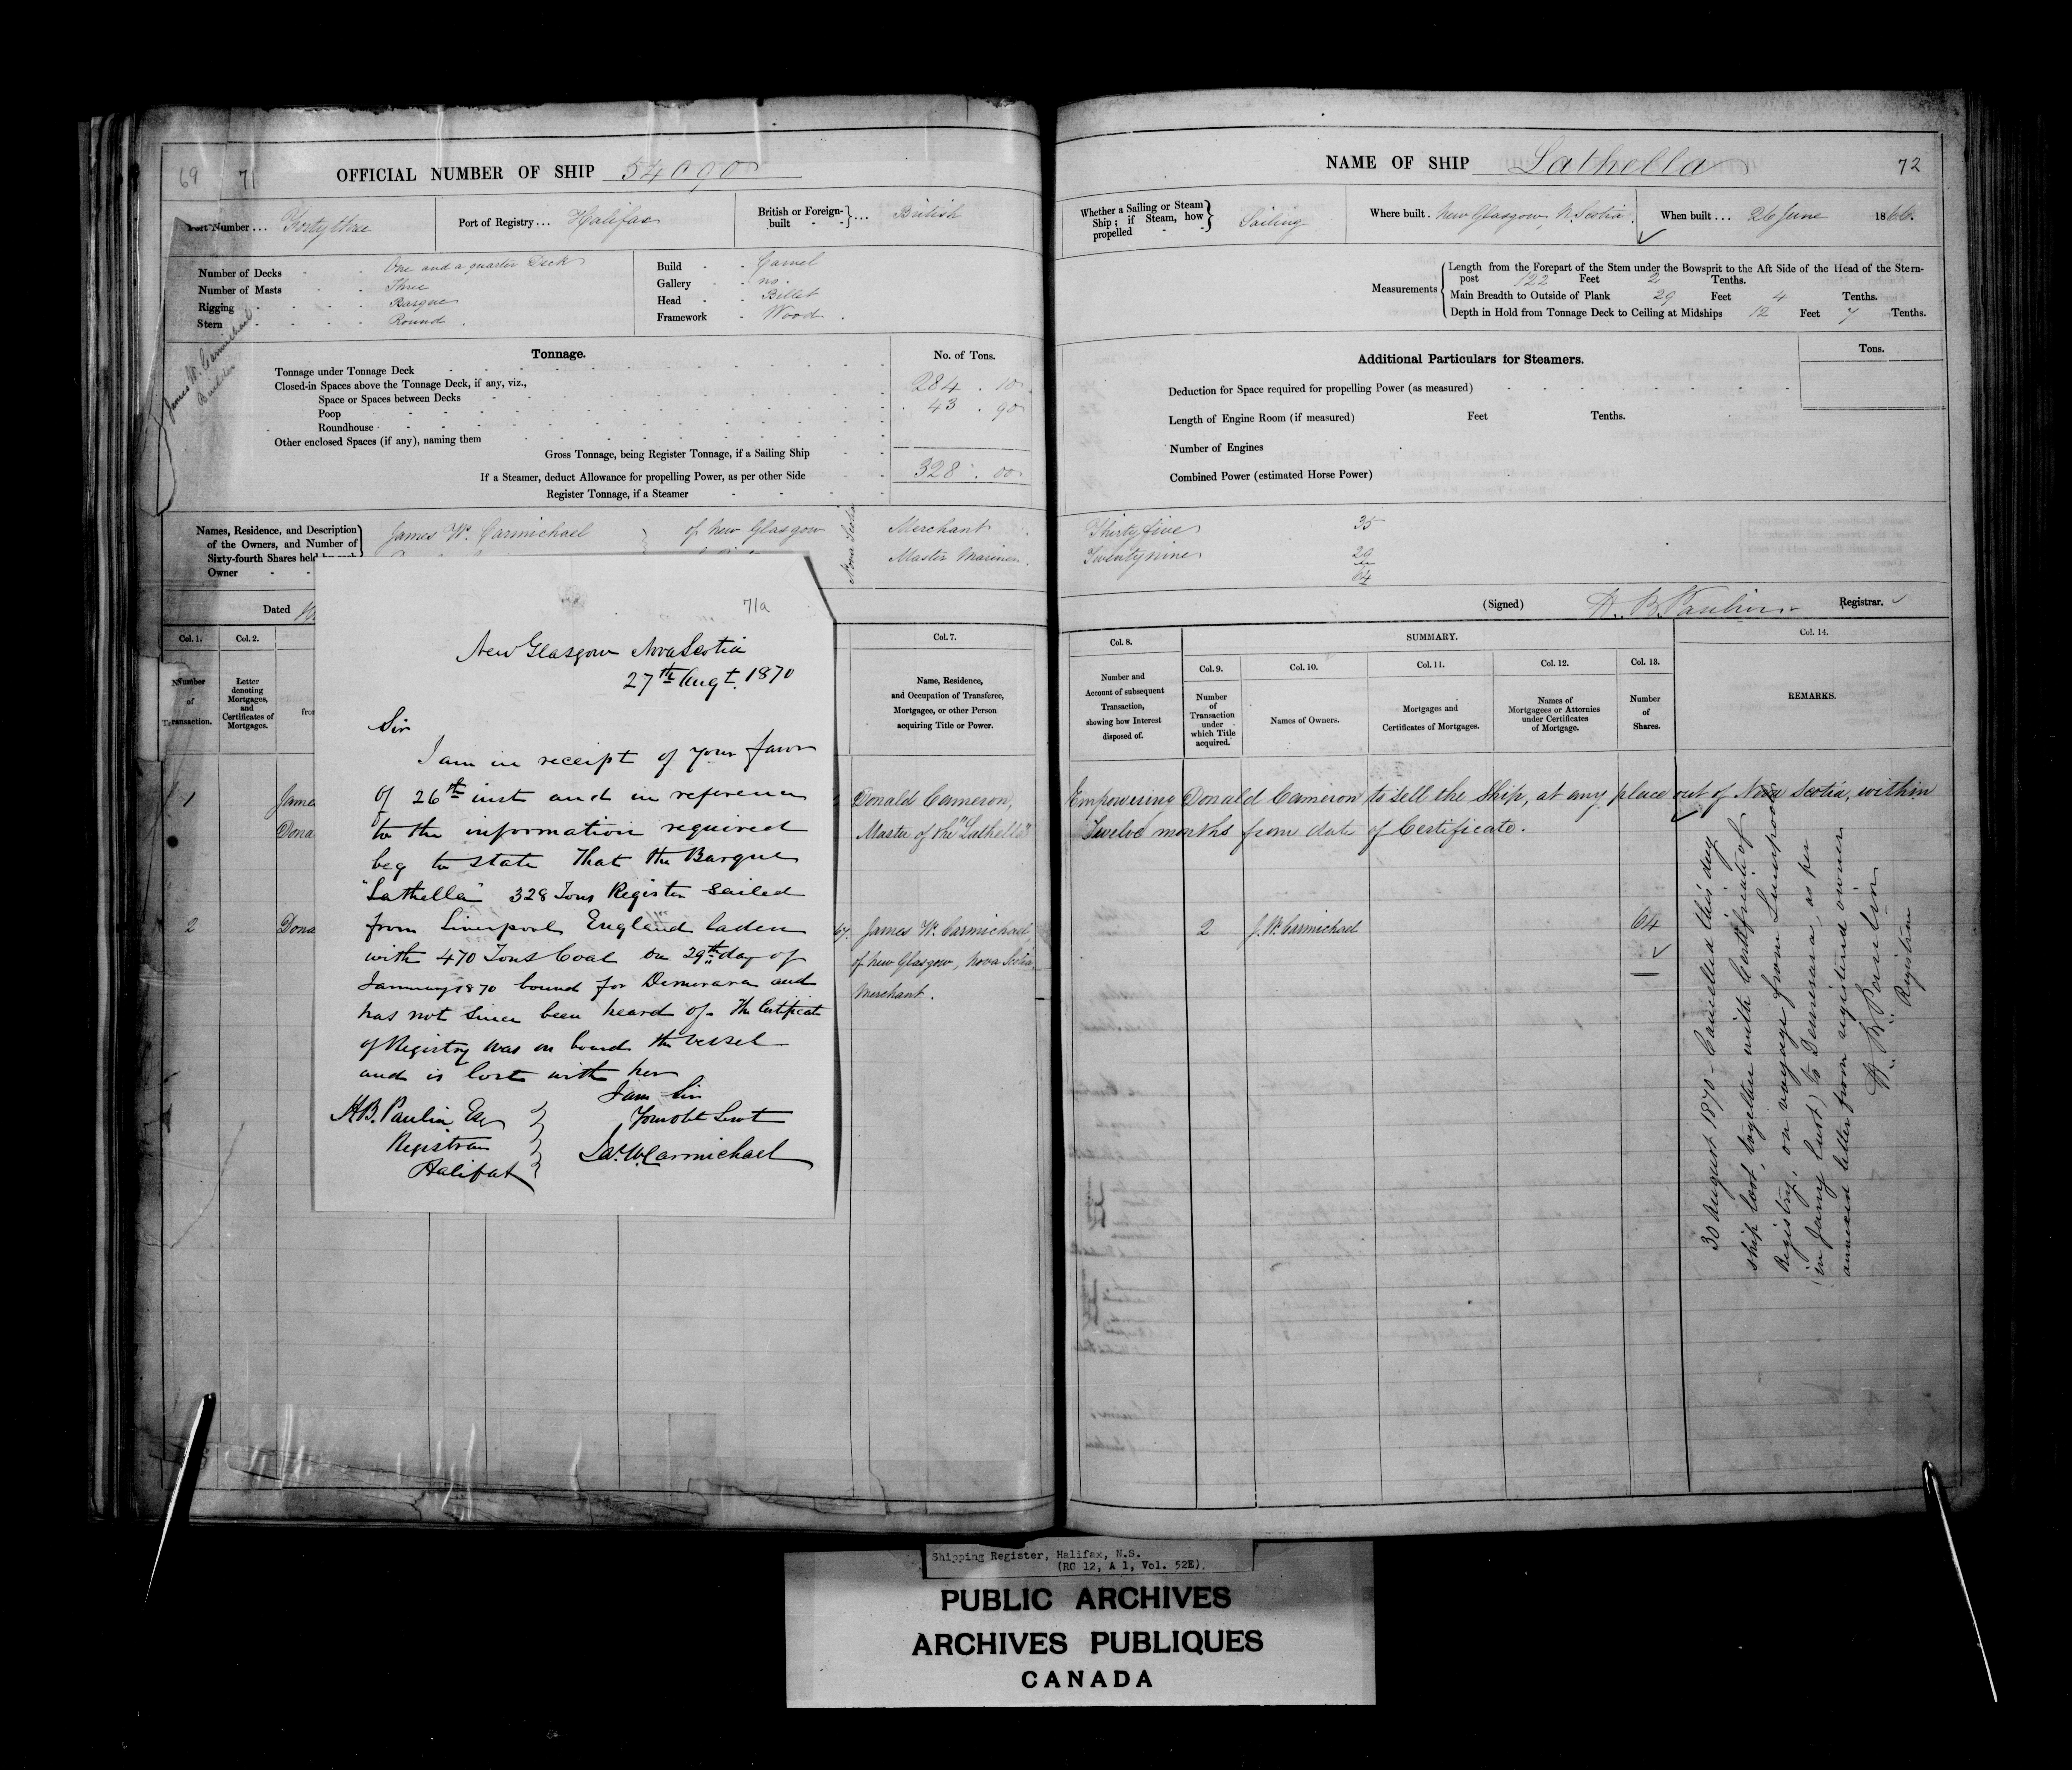 69 71 OFFICIAL NUMBER OF SHIP 54090
Port Number ... Forty three Port of Registry ... Halifax British or Foreign-built } ... British
Number of Decks - - One and a quarter Deck
Number of Masts - - Three
Rigging - - - - Barque
Stern - - - - Round.
Build - - Carvel
Gallery - - no.
Head - - Billet
Framework - Wood.
James W. Carmichael
Builder
Tonnage. No. of Tons.
Tonnage under Tonnage Deck 284 . 10
Closed-in Spaces above the Tonnage Deck, if any, viz.,
Space or Spaces between Decks 43 . 90
Poop
Roundhouse
Other enclosed Spaces (if any), naming them
Gross Tonnage, being Register Tonnage, if a Sailing Ship 328 . 00
If a Steamer, deduct Allowance for propelling Power, as per other Side
Register Tonnage, if a Steamer
Names, Residence, and Description
of the Owners, and Number of
Sixty-fourth Shares held by each
Owner - -
James W. Carmichael } of New Glasgow Nova Scotia Merchant
Master Mariner.
Dated
Col. 1. Col. 2. Col. 7.
Number of Transaction.
Letter denoting Mortgages, and Certificates of Mortgages.
Name, Residence, and Occupation of Transferee, Mortgagee, or other Person acquiring Title or Power.
1 Jame
Dona
Donald Cameron,
Master of the "Lathella"
2 Dona
James W. Carmichael
of New Glasgow, Nova Scotia
Merchant.
71a
New Glasgow Nova Scotia
27th Augt. 1870
Sir
I am in receipt of your favor
of 26th inst and in reference
to the information required
beg to state That the Barque
"Lathella" 328 Tons Register Sailed
from Liverpool England laden
with 470 Tons Coal on 29th day of
January 1870 bound for Demerara and
has not since been heard of - The Certificate
of Registry was on board the vessel
and is lost with her
I am Sir
Your obt Servt
Jas. W Carmichael
H.B. Paulin Esq
Registrar
Halifax
NAME OF SHIP Lathella 72
Whether a Sailing or Steam Ship; if Steam, how propelled - - } Sailing
Where built. New Glasgow, N. Scotia. When built ... 26 June 1866.
Measurements
Length from the Forepart of the Stem under the Bowsprit to the Aft Side of the Head of the Stern-
post 122 Feet 2 Tenths.
Main Breadth to Outside of Plank 29 Feet 4 Tenths.
Depth in Hold from Tonnage Deck to Ceiling at Midships 12 Feet 7 Tenths.
Additional Particulars for Steamers. Tons.
Deduction for Space required for propelling Power (as measured)
Length of Engine Room (if measured) Feet Tenths.
Number of Engines
Combined Power (estimated Horse Power)
Thirty five 35
Twenty nine 29
64
(Signed) H. B. Paulin Registrar.
Col. 8. SUMMARY. Col. 14.
Col. 9. Col. 10. Col. 11. Col. 12. Col. 13.
Number and Account of subsequent Transaction, showing how Interest disposed of.
Number of Transaction under which Title acquired.
Names of Owners.
Mortgages and Certificates of Mortgages.
Names of Mortgagees or Attornies under Certificates of Mortgage.
Number of Shares.
REMARKS.
Empowering Donald Cameron to sell the Ship, at any place out of Nova Scotia, within
Twelve months from date of Certificate.
2 J. W. Carmichael 64
30 August 1870 - Cancelled this day
ship lost, together with Certificate of
Registry, on voyage from Liverpool
(in Jany last) to Demerara, as per
annexed letter from registered owner
H. B. Paulin
Registrar
Shipping Register, Halifax, N.S.
(RG 12, A 1, Vol. 52E).
PUBLIC ARCHIVES
ARCHIVES PUBLIQUES
CANADA